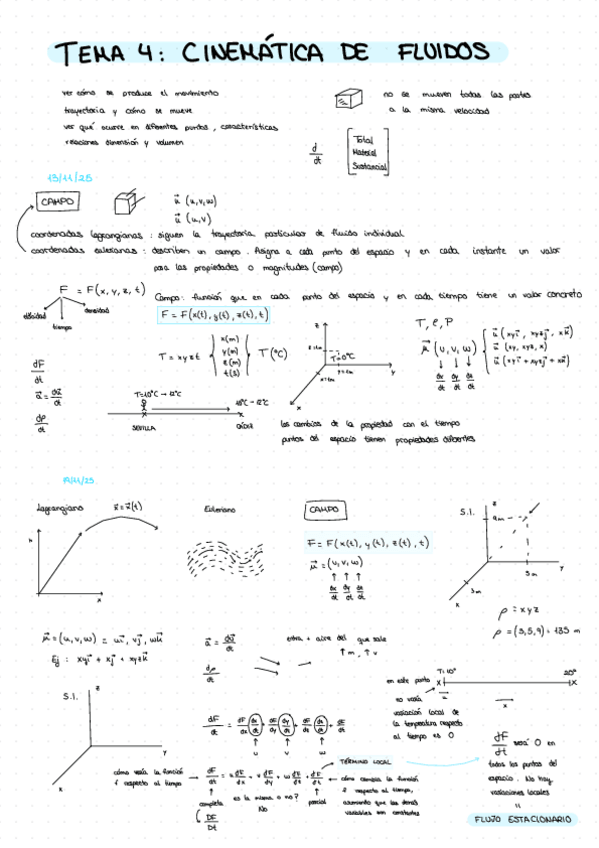 TEMA 4: CINEMÁTICA DE FLUIDOS
ver cómo se produce el movimiento
trayectoria y cómo se mueve
ver qué ocurre en diferentes puntos, características
relaciones dimensión y volumen
no se mueven todas las partes
a la misma velocidad
d/dt
Total
Material
Sustancial
13/11/25
CAMPO
u⃗ (u,v,w)
u⃗ (u,v)
coordenadas lagrangianas: siguen la trayectoria particular de fluido individual
coordenadas eulerianas: describen un campo. Asigna a cada punto del espacio y en cada instante un valor
para las propiedades o magnitudes (campo)
F = F(x, y, z, t)
densidad
tiempo
Campo: función que en cada punto del espacio y en cada tiempo tiene un valor concreto
F = F(x(t), y(t), z(t), t)
T = xyzt
x(m)
y(m)
z(m)
t(s)
T(°C)
T=0°C
z
y
x
T, ρ, P
(u, v, w)
dx/dt dy/dt dz/dt
dF/dt
a⃗ = du⃗/dt
dρ/dt
SEVILLA
CÁDIZ
los cambios de la propiedad con el tiempo
puntos del espacio tienen propiedades diferentes
Lagrangiano
x⃗ = x⃗(t)
Euleriano
CAMPO
F = F(x(t), y(t), z(t), t)
= (u, v, w)
dx/dt dy/dt dz/dt
S.I.
z
9m
5m
y
3m
x
ρ = xyz
ρ = (3,5,9) = 135
= (u, v, w) = ui⃗, vj⃗, wk⃗
Ej: xyi⃗ + xj⃗ + xyzk⃗
a⃗ = du⃗/dt
dρ/dt
entra + aire del que sale
T=10°
20°
en este punto
no varía
variación local de
la temperatura respecto
al tiempo es 0
S.I.
z
y
x
dF/dt = dF/dx dx/dt + dF/dy dy/dt + dF/dz dz/dt + dF/dt
u v w
TÉRMINO LOCAL
cómo varía la función
f respecto al tiempo
completa
es lo mismo o no?
No
parcial
cómo cambia la función
f respecto al tiempo,
asumiendo que las demás
variables son constantes
DF/Dt
dF/dt será 0 en
todos los puntos del
espacio. No hay
variaciones locales
FLUJO ESTACIONARIO